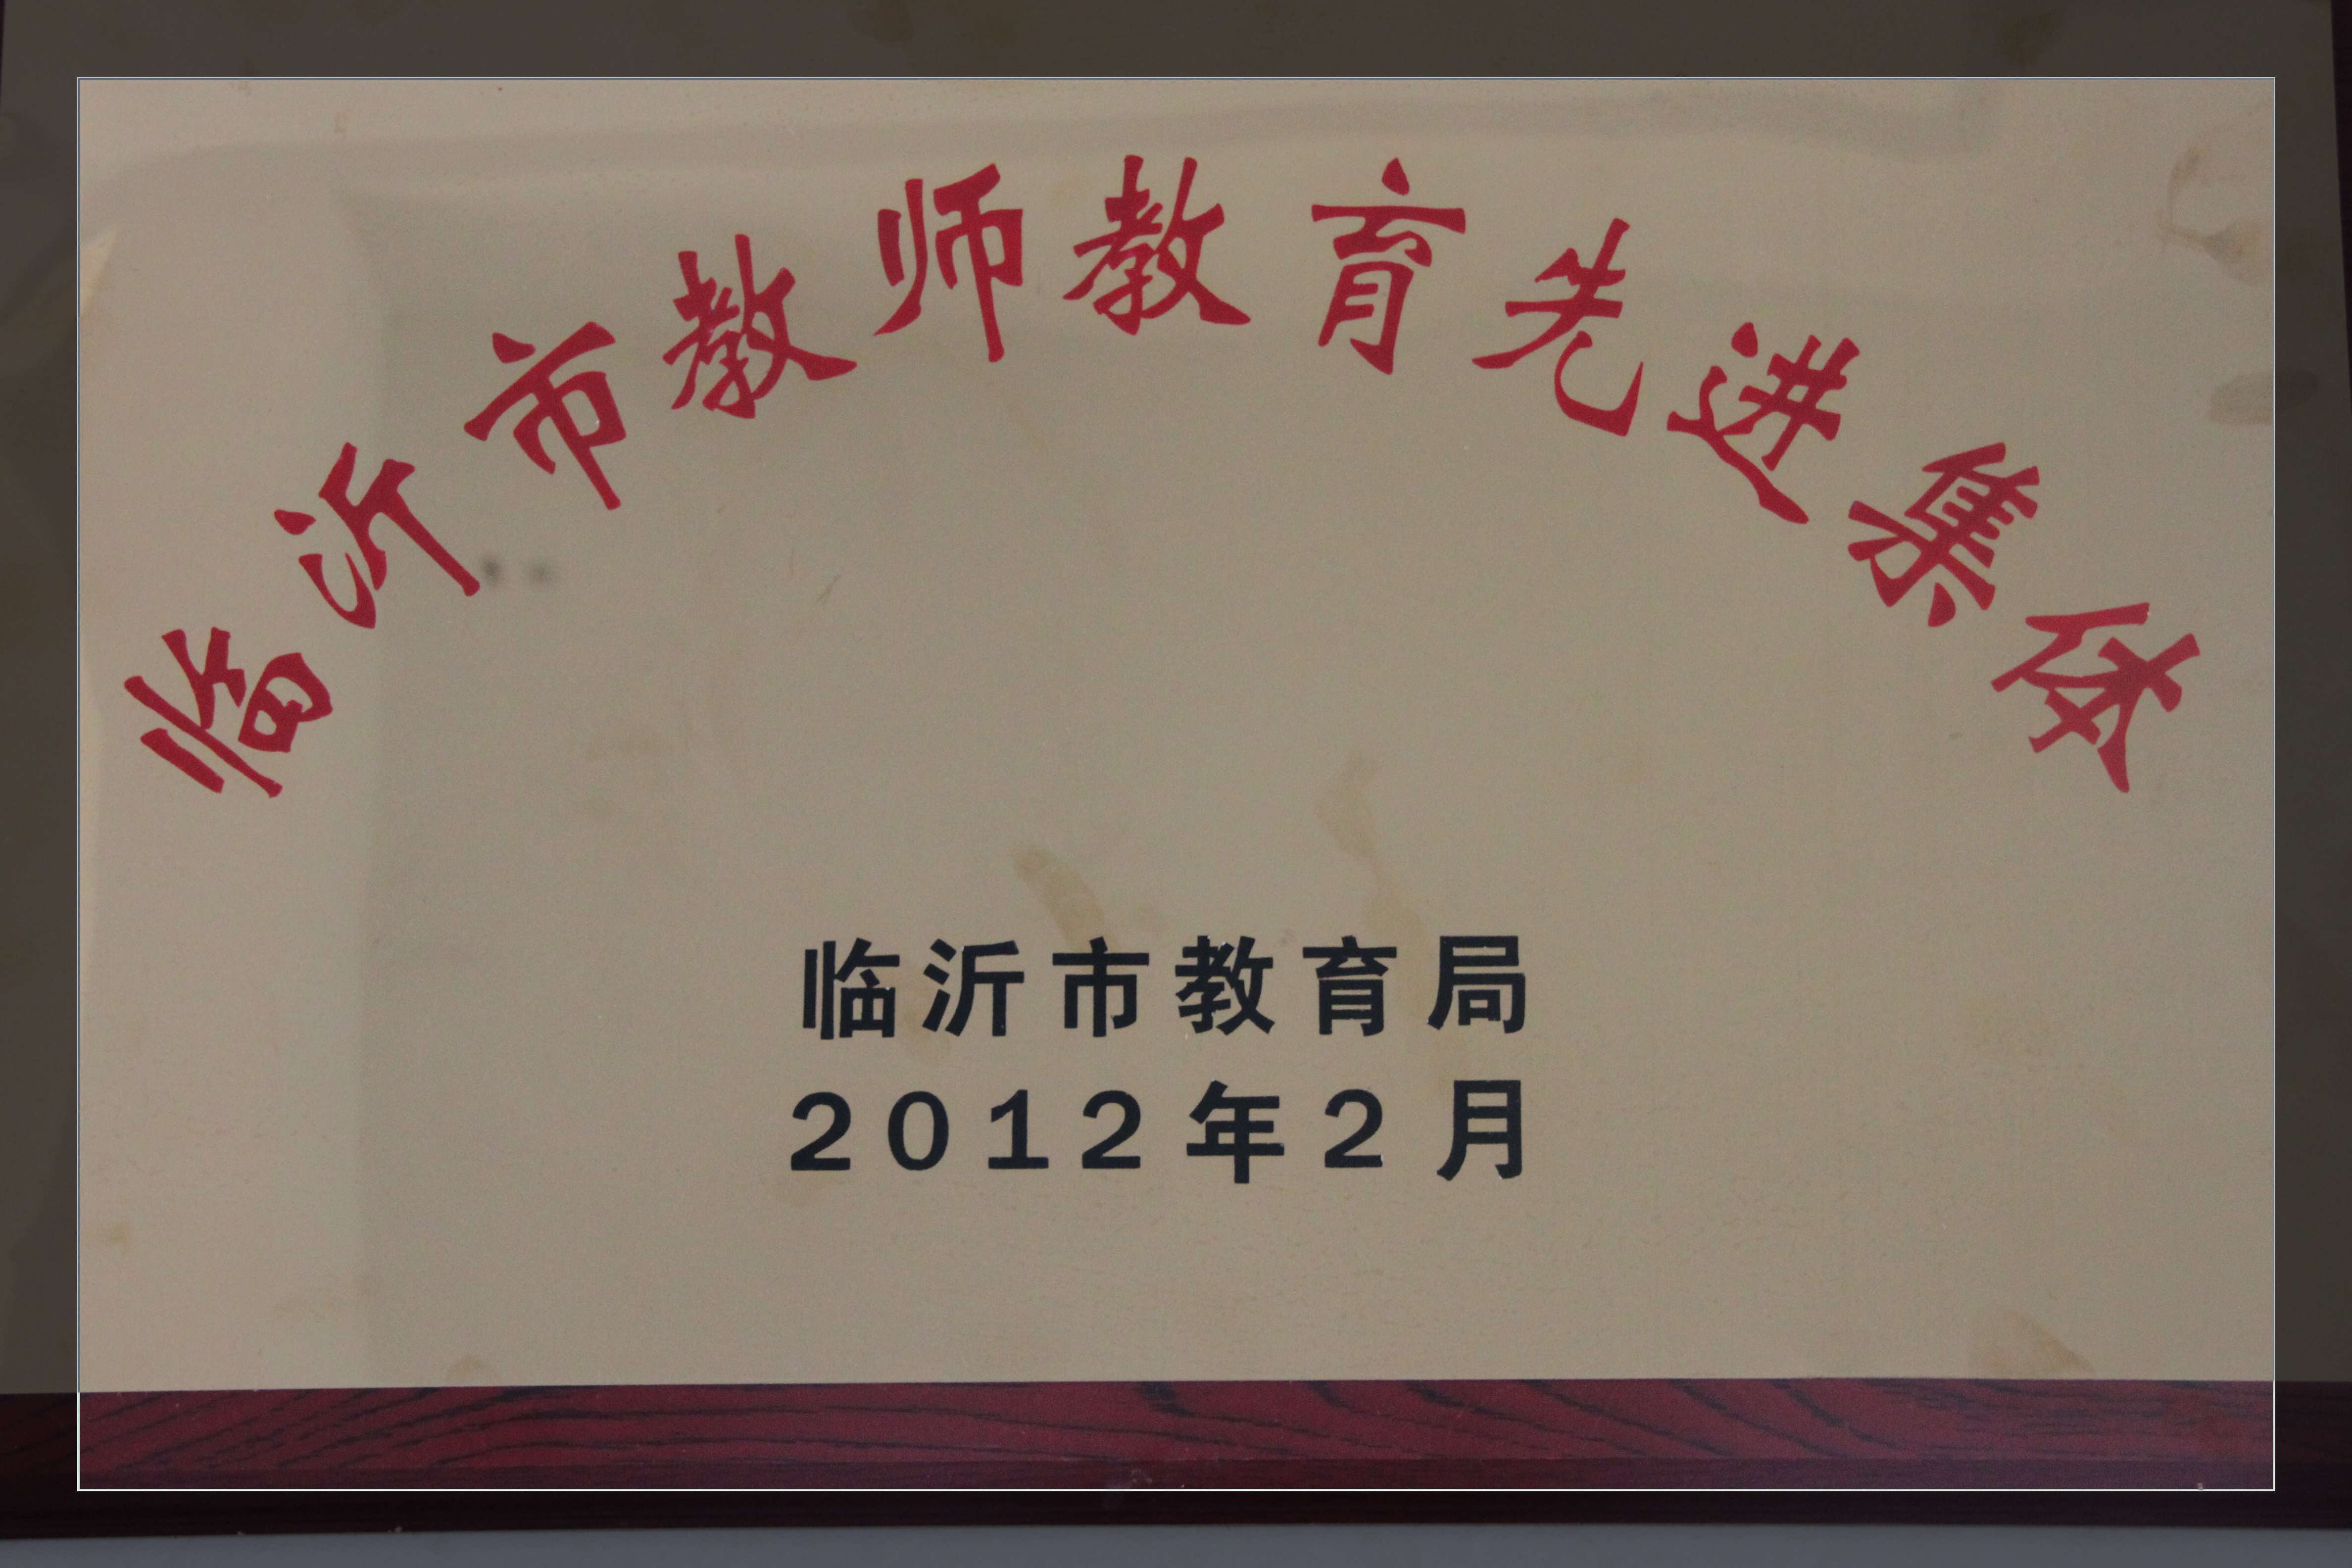 临沂市教师教育先进集体
临沂市教育局
2012年2月